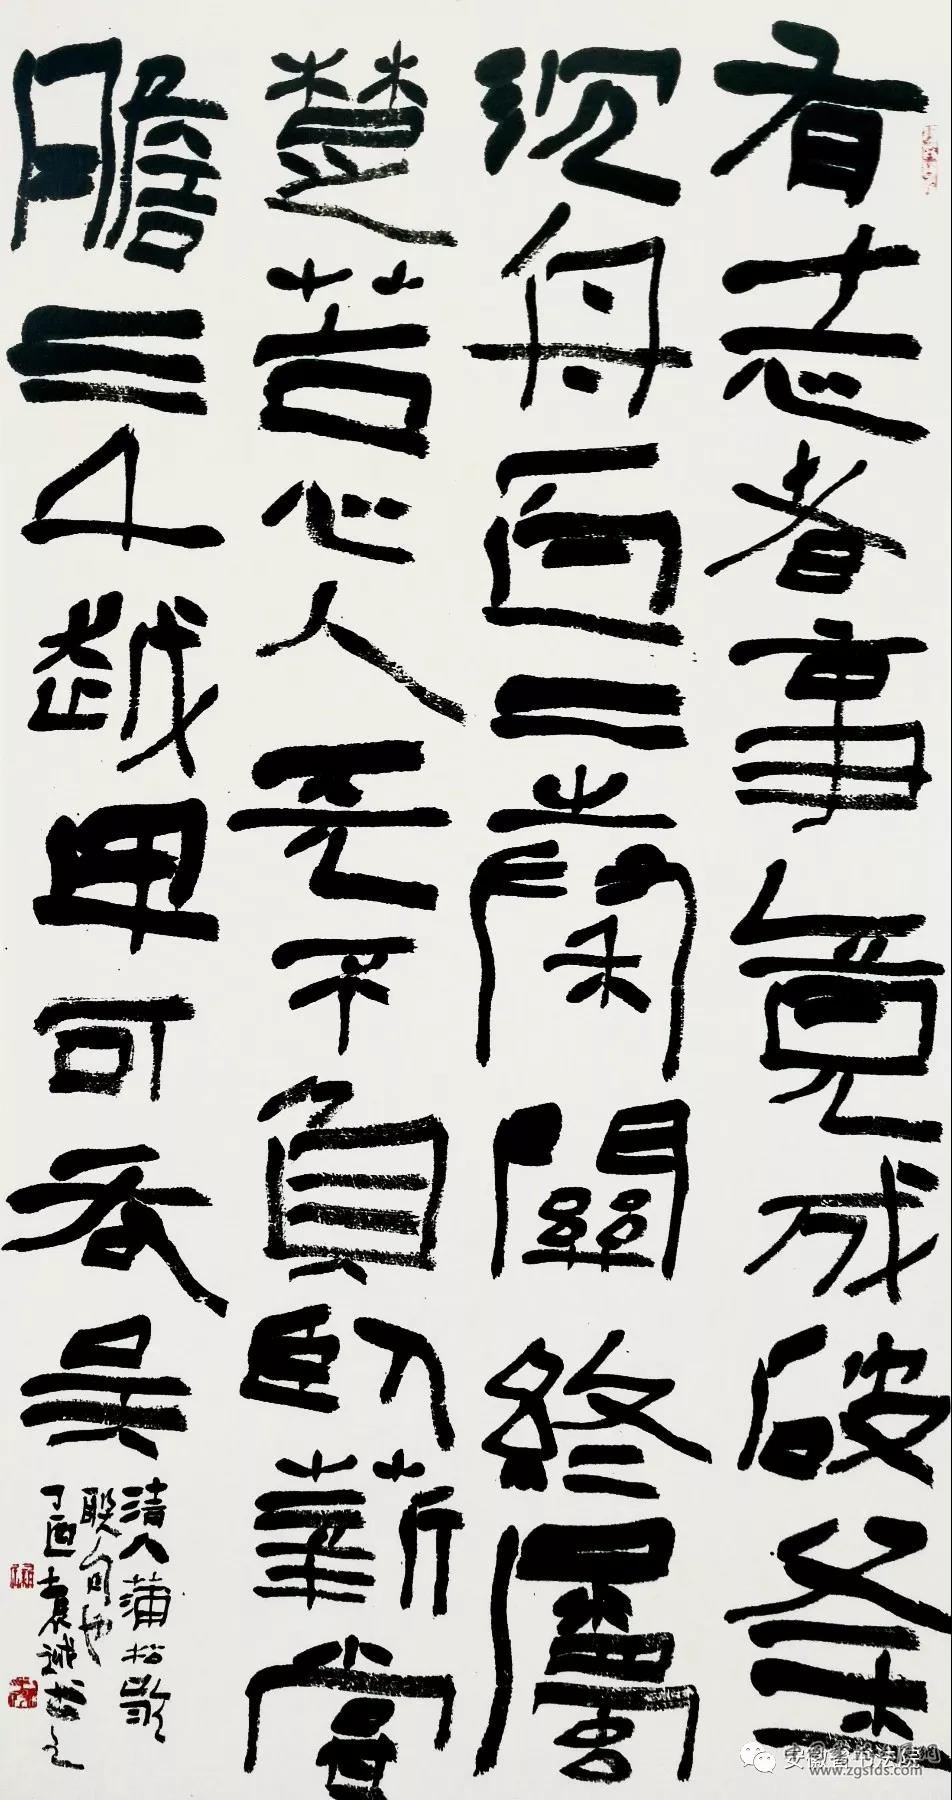 有志者事竟成破釜
沉舟百二秦關終屬
楚苦心人天不負臥薪嘗
膽三千越甲可吞吳
清人蒲松齡
聯句也
丁酉袁书之
安徽省书法院
www.zgsfds.com